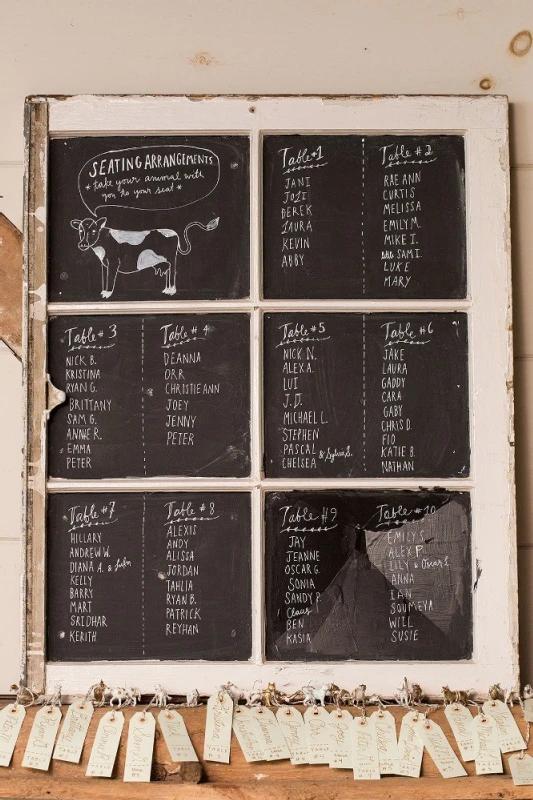 SEATING ARRANGEMENTS
* take your animal with
you to your seat *
Table #1
JANI
JOSI
DEREK
LAURA
KEVIN
ABBY
Table # 2
RAE ANN
CURTIS
MELISSA
EMILY M.
MIKE I.
SAM I.
LUKE
MARY
Table # 3
NICK B.
KRISTINA
RYAN G.
BRITTANY
SAM G.
ANNIE R.
EMMA
PETER
Table # 4
DEANNA
ORR
CHRISTIE ANN
JOEY
JENNY
PETER
Table #5
NICK N.
ALEX A.
LUI
J.D.
MICHAEL L.
STEPHEN
PASCAL & Sylvia S.
CHELSEA
Table #6
JAKE
LAURA
GADDY
CARA
GABY
CHRIS D.
FIO
KATIE B.
NATHAN
Table #7
HILLARY
ANDREW W.
DIANA A. &
KELLY
BARRY
MART
SRIDHAR
KERITH
Table # 8
ALEXIS
ANDY
ALISSA
JORDAN
TAHLIA
RYAN B.
PATRICK
REYHAN
Table #9
JAY
JEANNE
OSCAR G.
SONIA
SANDY P.
Claus
BEN
KASIA
Table #10
EMILY S.
ALEX P.
LILY & Oscar L.
ANNA
IAN
SOUMEYA
WILL
SUSIE